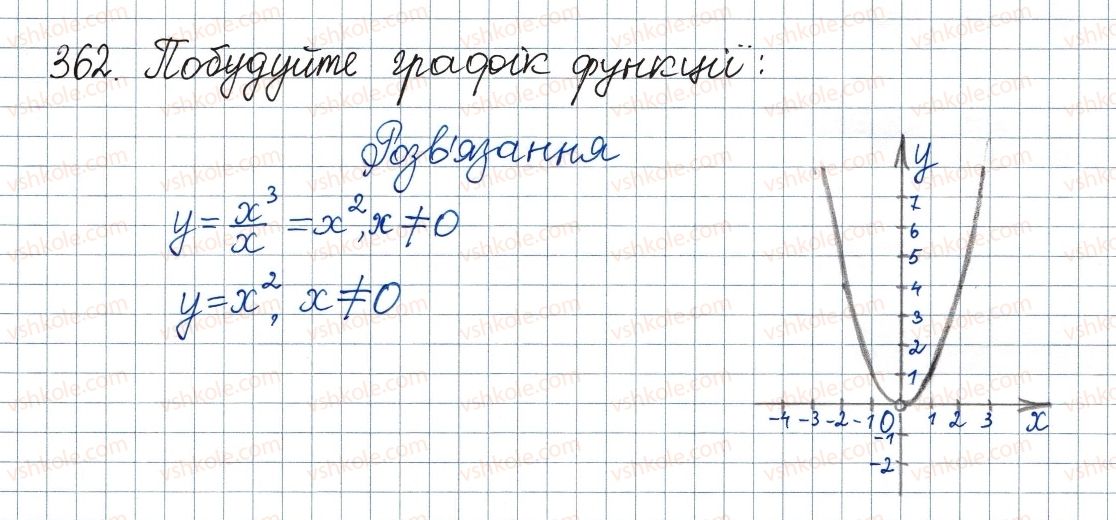 362. Побудуйте графік функції:
Розв'язання
y = x³/x = x², x ≠ 0
y = x², x ≠ 0
y
7
6
5
4
3
2
1
-4 -3 -2 -1 0 1 2 3 x
-1
-2
vshkole.com